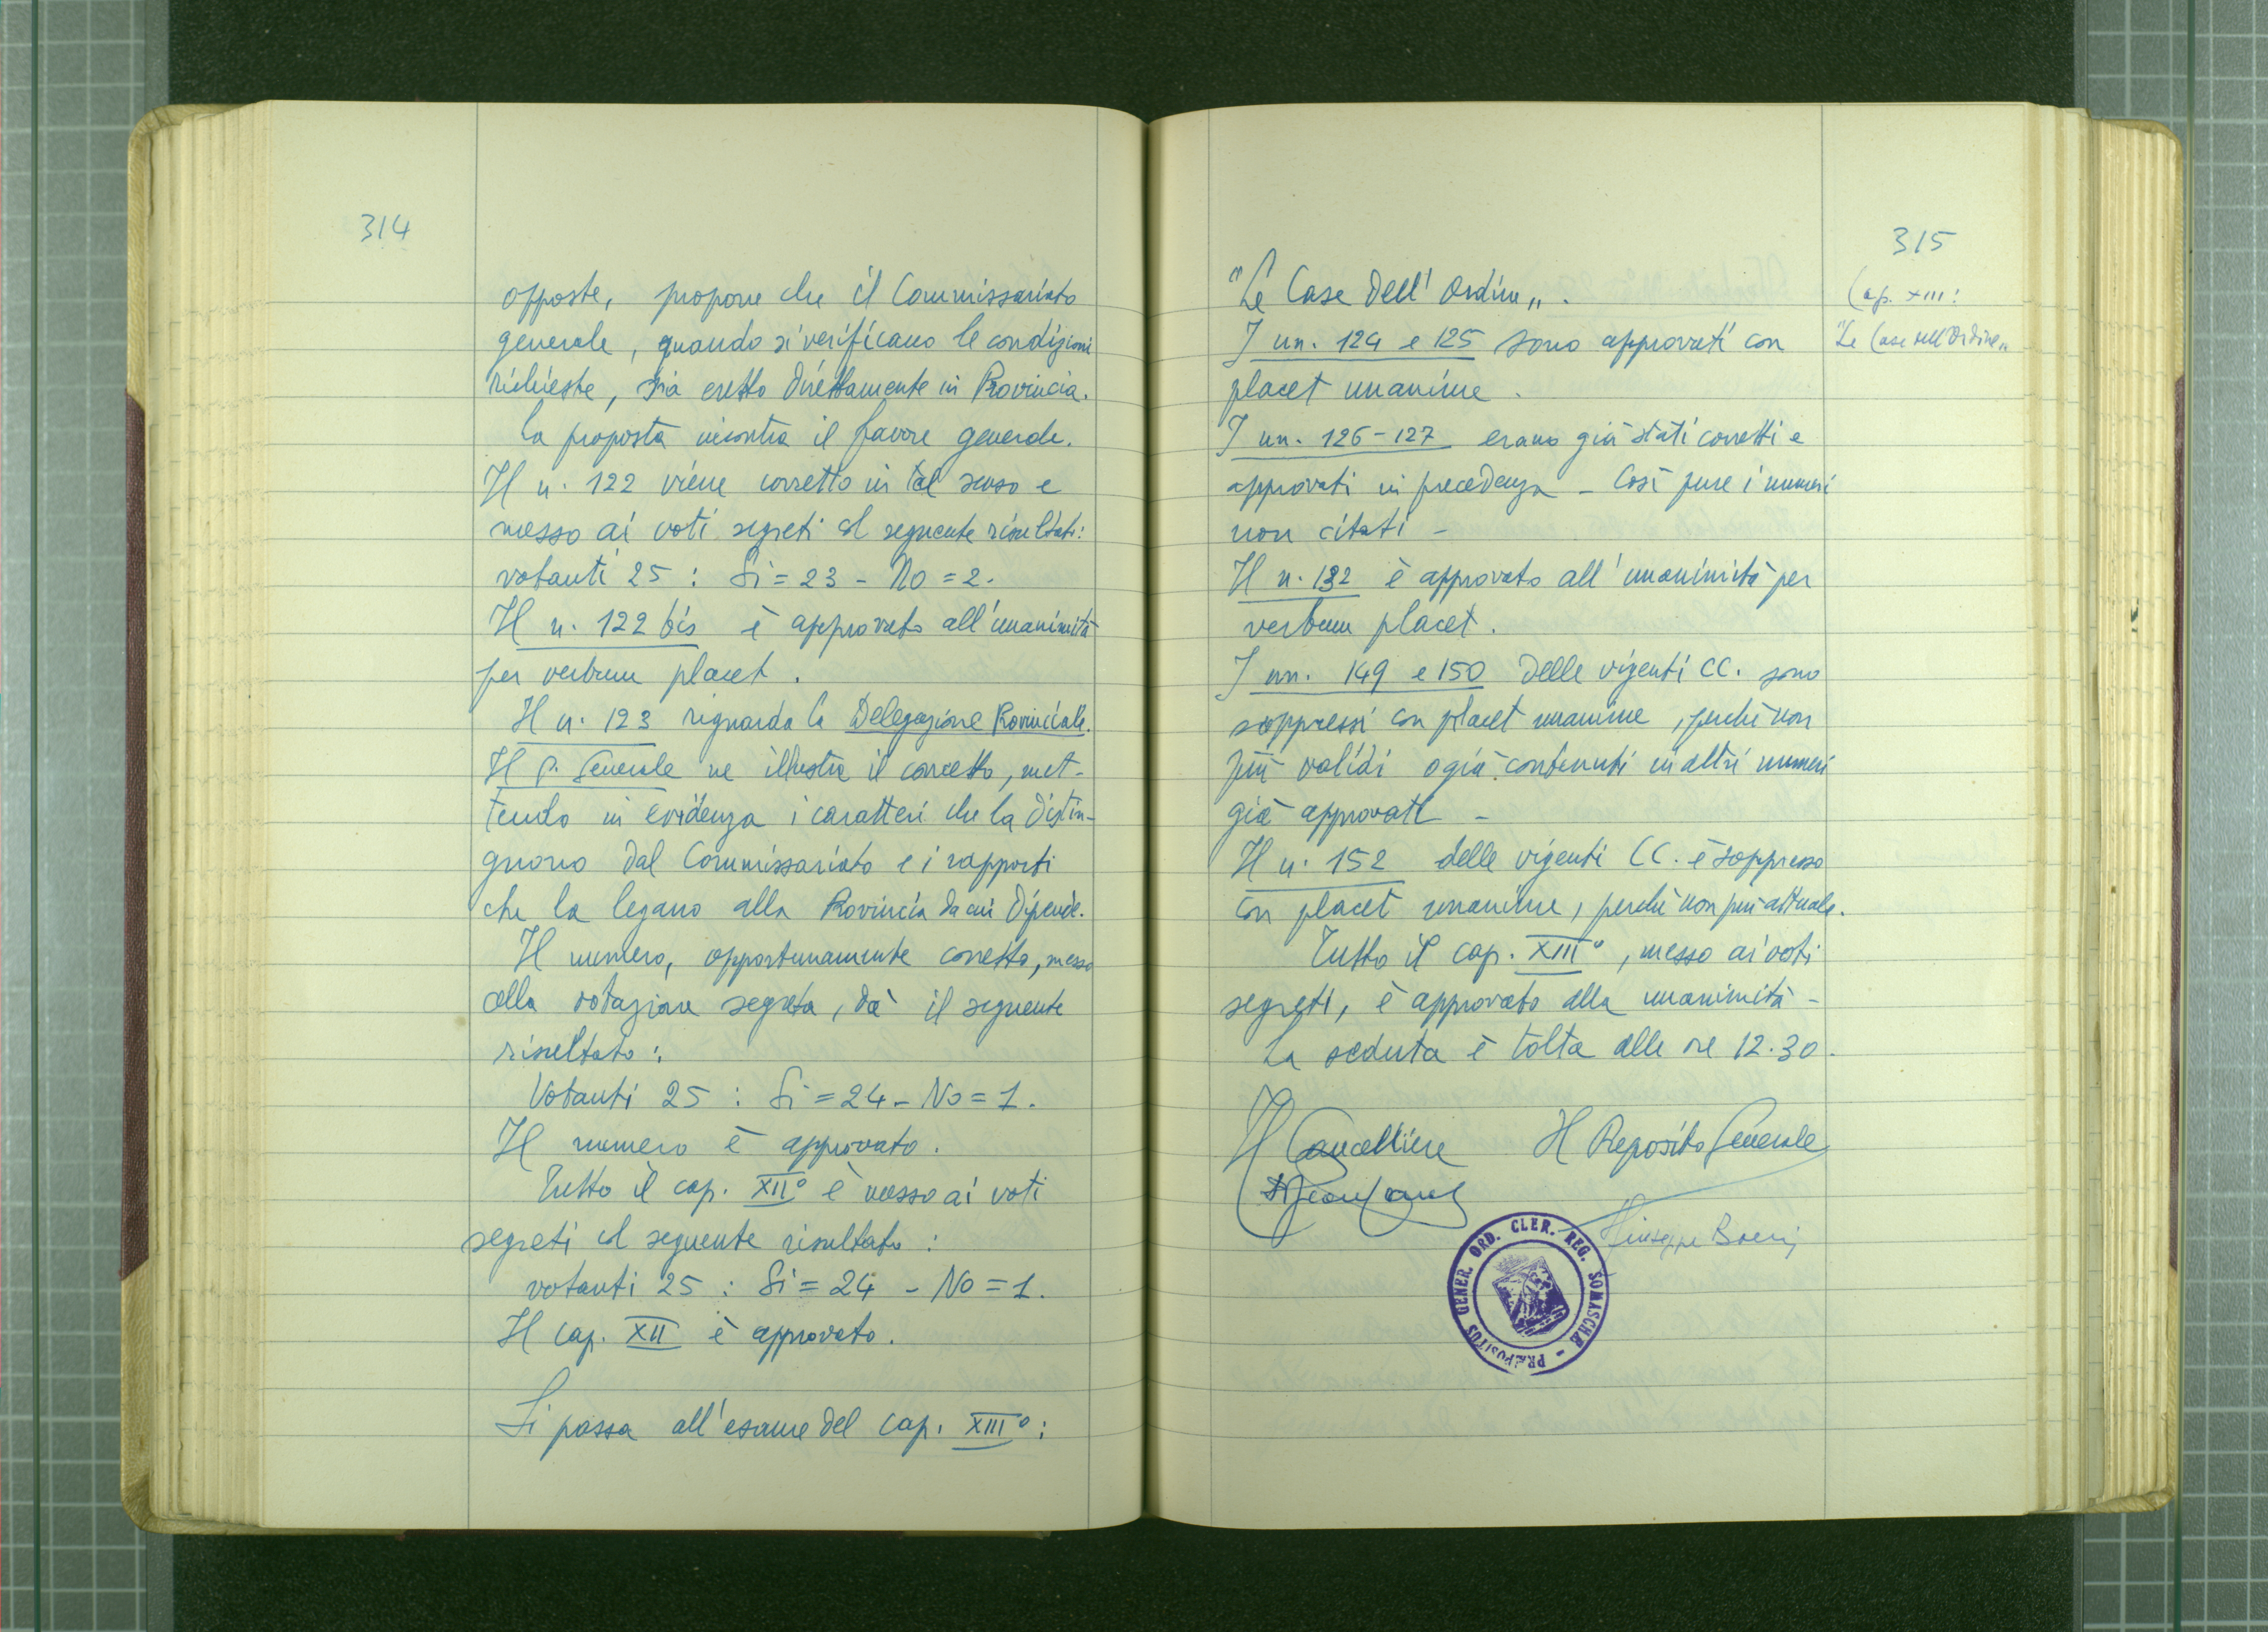 314
opposte, propone che il Commissariato
generale, quando si verificano le condizioni
richieste, sia eretto direttamente in Provincia.
La proposta incontra il favore generale.
Il n. 122 viene corretto in tal senso e
messo ai voti segreti col seguente risultato:
votanti 25 : Si = 23 - No = 2.
Il n. 122 bis è approvato all'unanimità
per verbum placet.
Il n. 123 riguarda la Delegazione Provinciale.
Il P. Generale ne illustra il concetto, met-
tendo in evidenza i caratteri che la distin-
guono dal Commissariato e i rapporti
che la legano alla Provincia da cui dipende.
Il numero, opportunamente corretto, messo
alla votazione segreta, dà il seguente
risultato:
Votanti 25 : Si = 24 - No = 1.
Il numero è approvato.
Tutto il cap. XII° è messo ai voti
segreti col seguente risultato:
votanti 25 : Si = 24 - No = 1.
Il cap. XII è approvato.
Si passa all'esame del cap. XIII°:
315
Cap. XIII:
"Le Case dell'Ordine„
"Le Case dell'Ordine„.
I nn. 124 e 125 sono approvati con
placet unanime.
I nn. 126-127 erano già stati corretti e
approvati in precedenza - Così pure i numeri
non citati -
Il n. 132 è approvato all'unanimità per
verbum placet.
I nn. 149 e 150 delle vigenti CC. sono
soppressi con placet unanime, perché non
più validi o già contenuti in altri numeri
già approvati -
Il n. 152 delle vigenti CC. è soppresso
con placet unanime, perché non più attuale.
Tutto il cap. XIII°, messo ai voti
segreti, è approvato alla unanimità -
La seduta è tolta alle ore 12.30.
Il Cancelliere Il Preposito Generale
Giuseppe Boeris
PRÆPOSITUS GENER. ORD. CLER. REG. SOMASCHÆ -